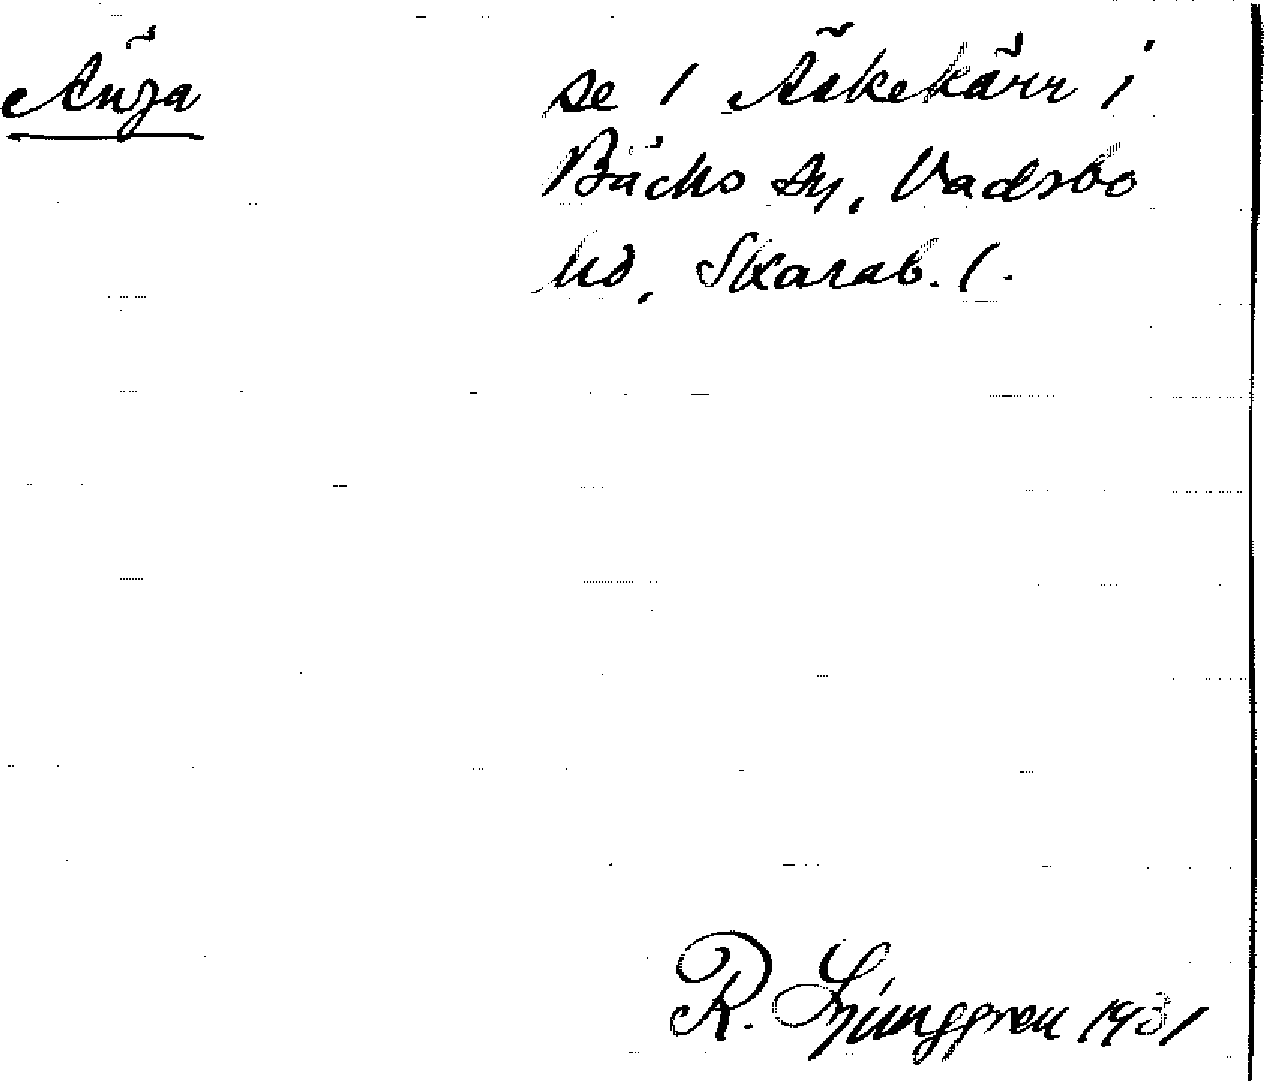 Änga
se 1 Äskekärr i
Bäcks sn, Vadsbo
hd, Skarab. l.
R. Ljunggren 1931